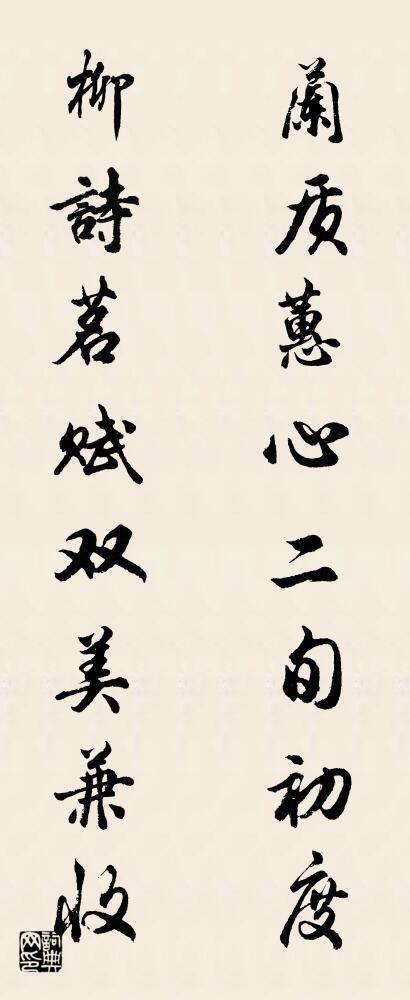 蘭质蕙心二旬初度
柳詩茗赋双美兼收
詞典网印